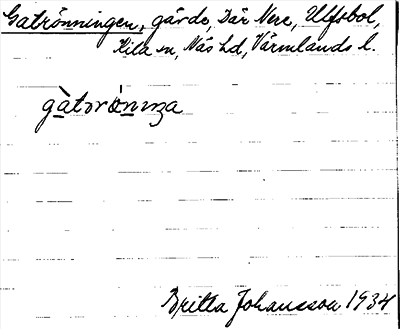 Gatrönningen, gärde, Där Nere, Ulfsbol,
Kila sn, Näs hd, Värmlands l.
gàtrönıŋa
Britta Johansson 1934